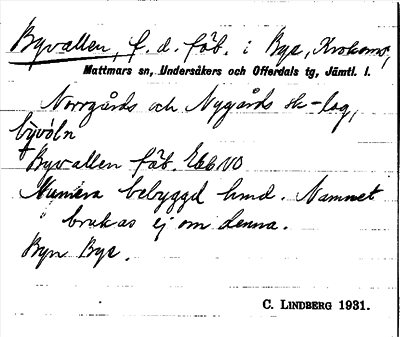 Byvallen, f. d. fäb. i Bye, Krokoms,
Mattmars sn, Undersåkers och Offerdals tg, Jämtl. l.
Norrgårds och Nygårds sk-lag,
Byvallen fäb. Eb6 NO
Numera bebyggd hmd. Namnet
brukas ej om denna.
Byn Bye.
C. LINDBERG 1931.